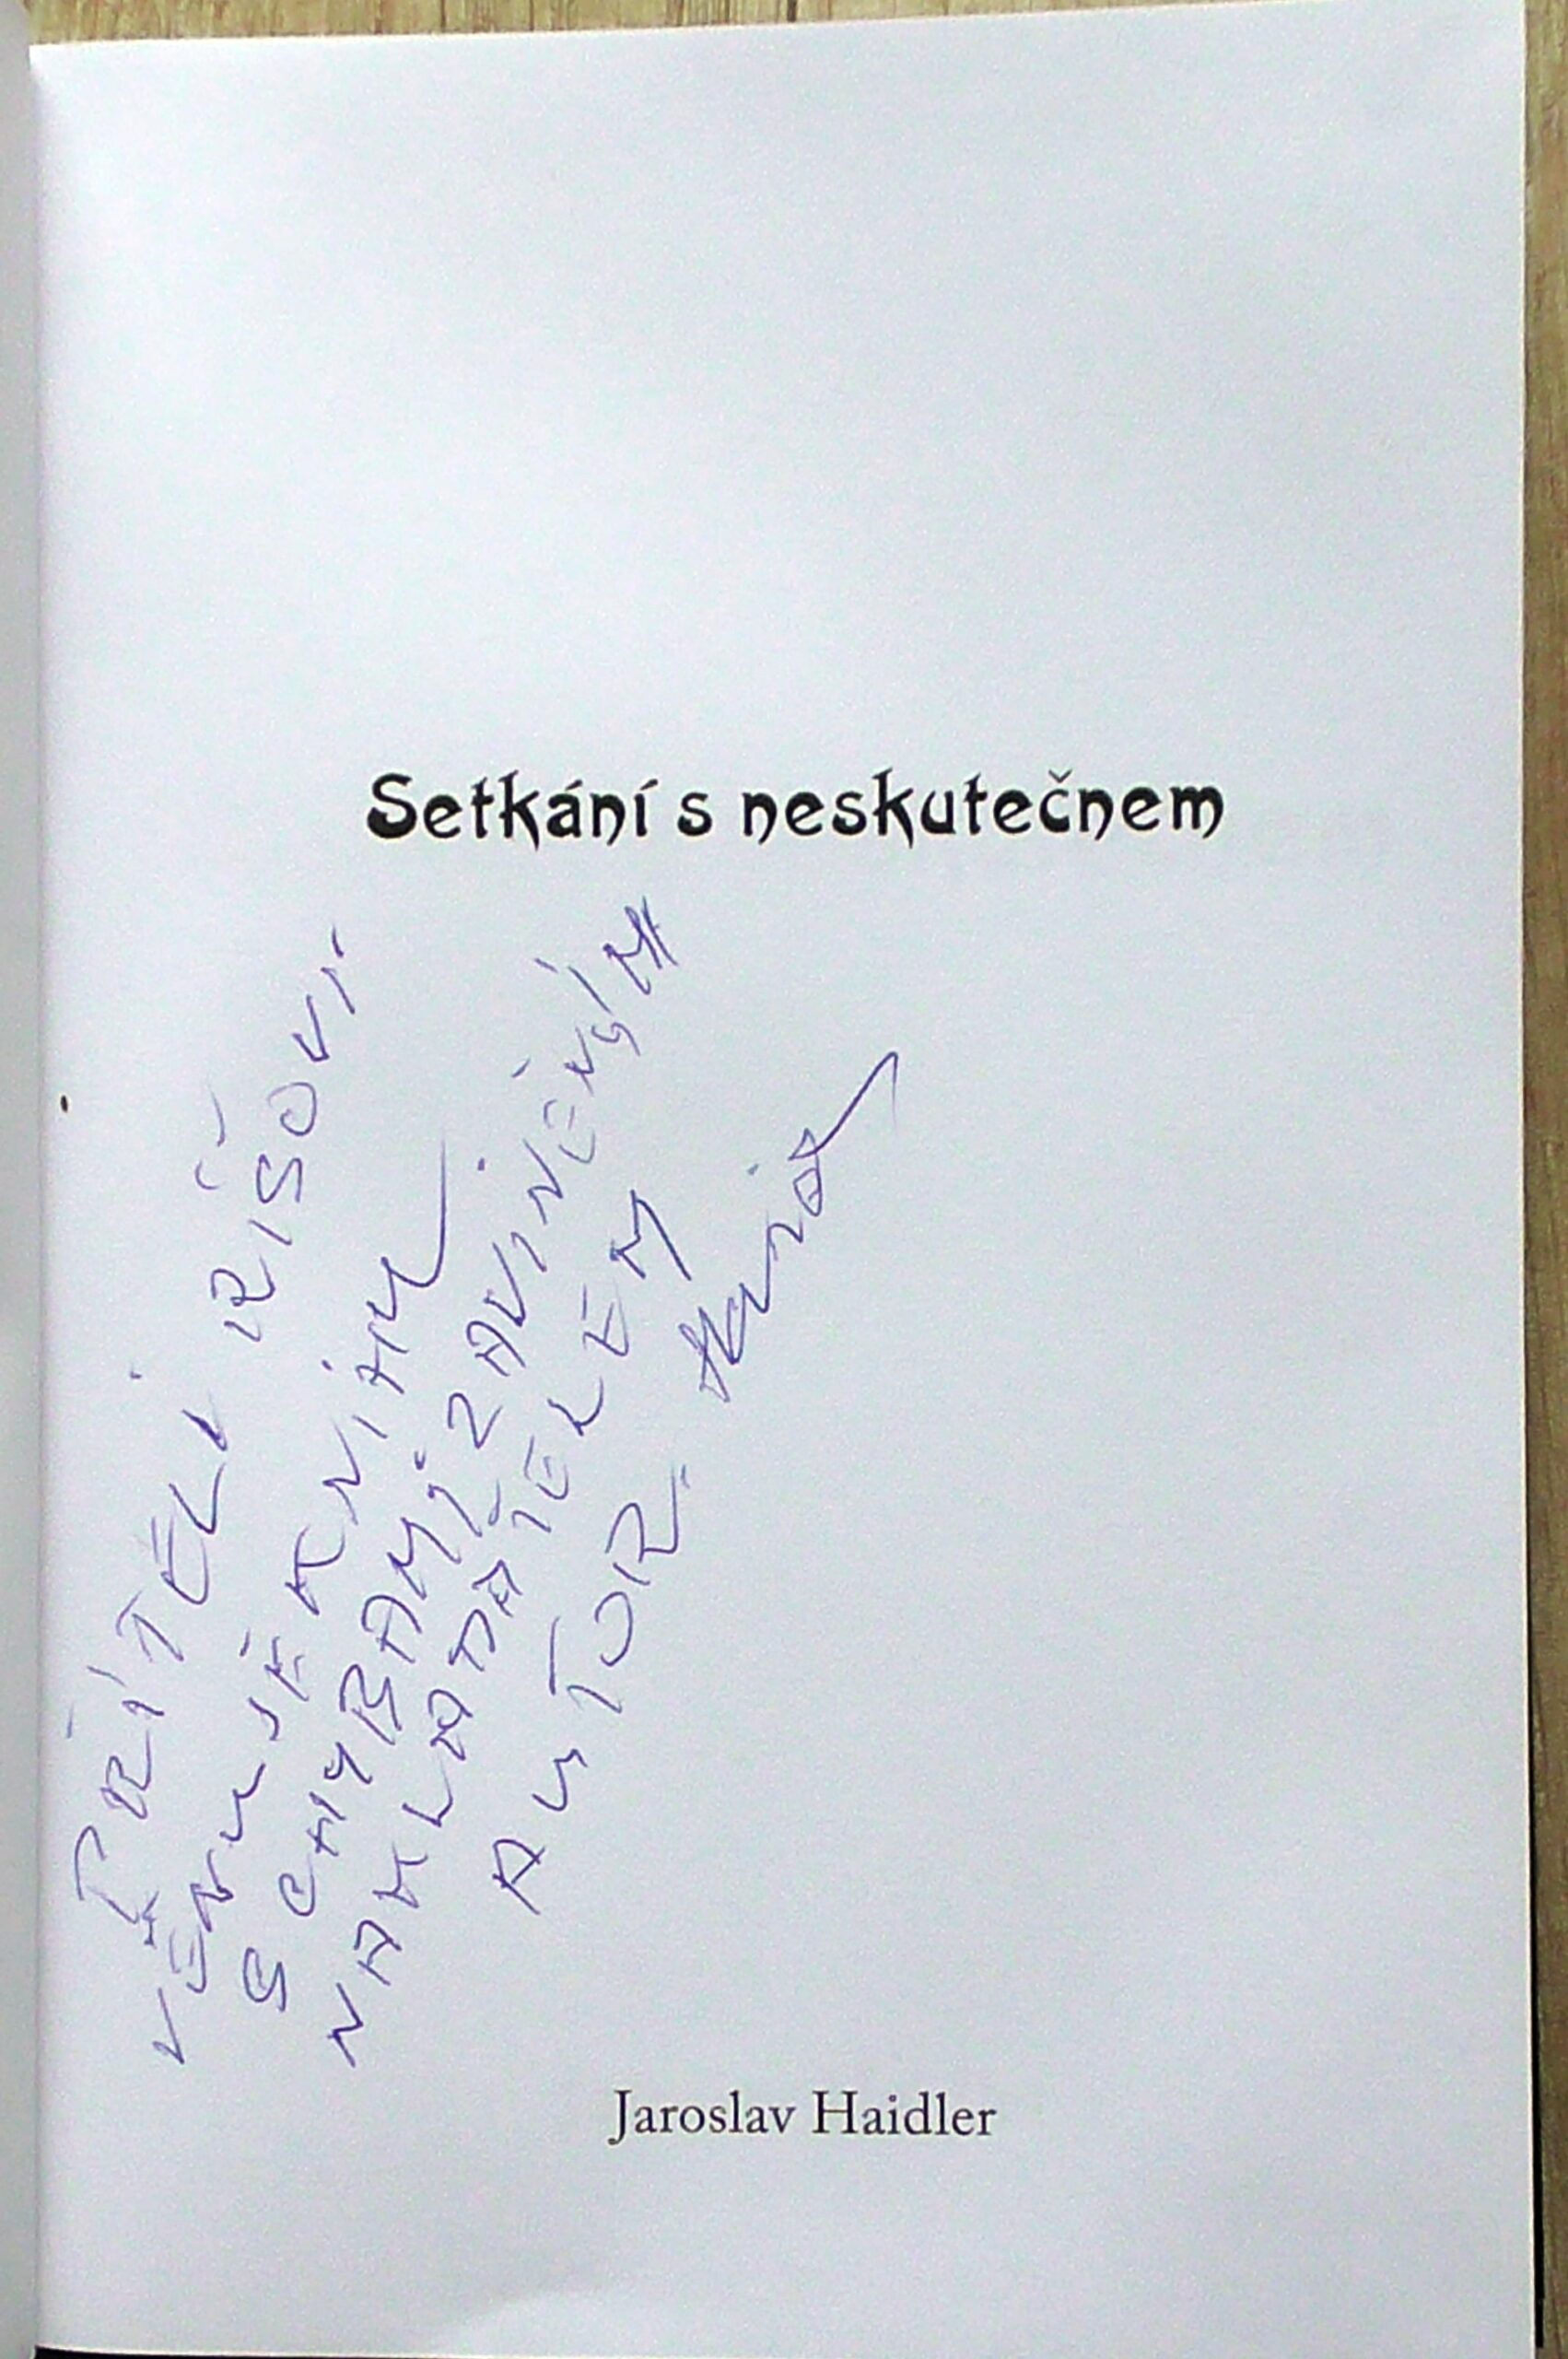 Setkání s neskutečnem
PŘÍTELI RIŠOVI
VĚNUJE KNIHU
S CHYBAMI ZAVINĚNÝM
NAKLADATELEM
AUTOR.
Jaroslav Haidler